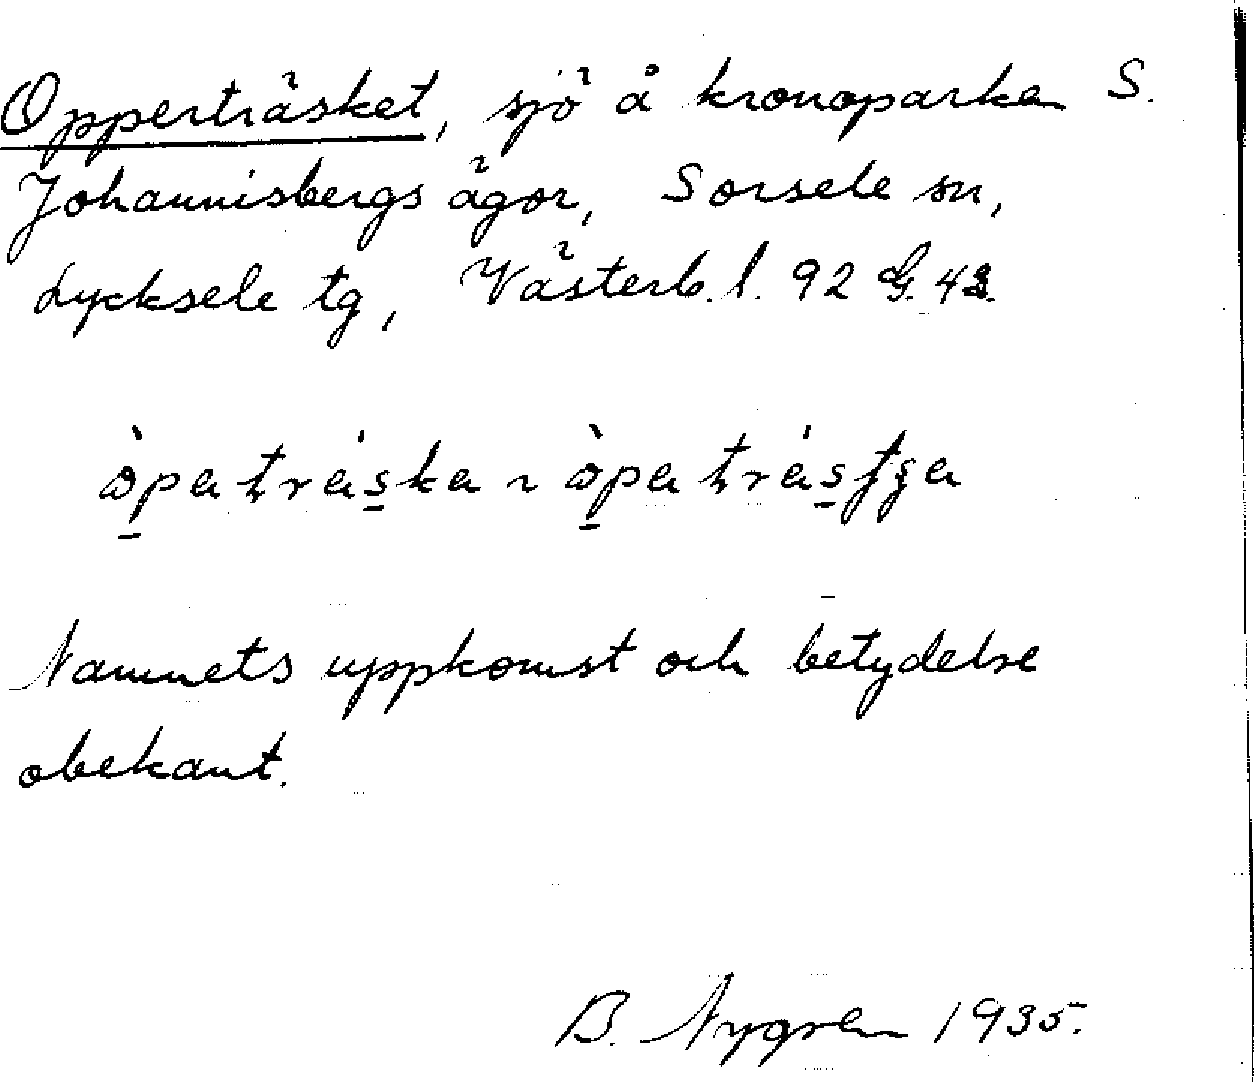 Opperträsket, sjö å kronoparken S.
Johannisbergs ägor, Sorsele sn,
Lycksele tg, Västerb. l. 92 G. 43.
Namnets uppkomst och betydelse
obekant.
B. Nygren 1935.